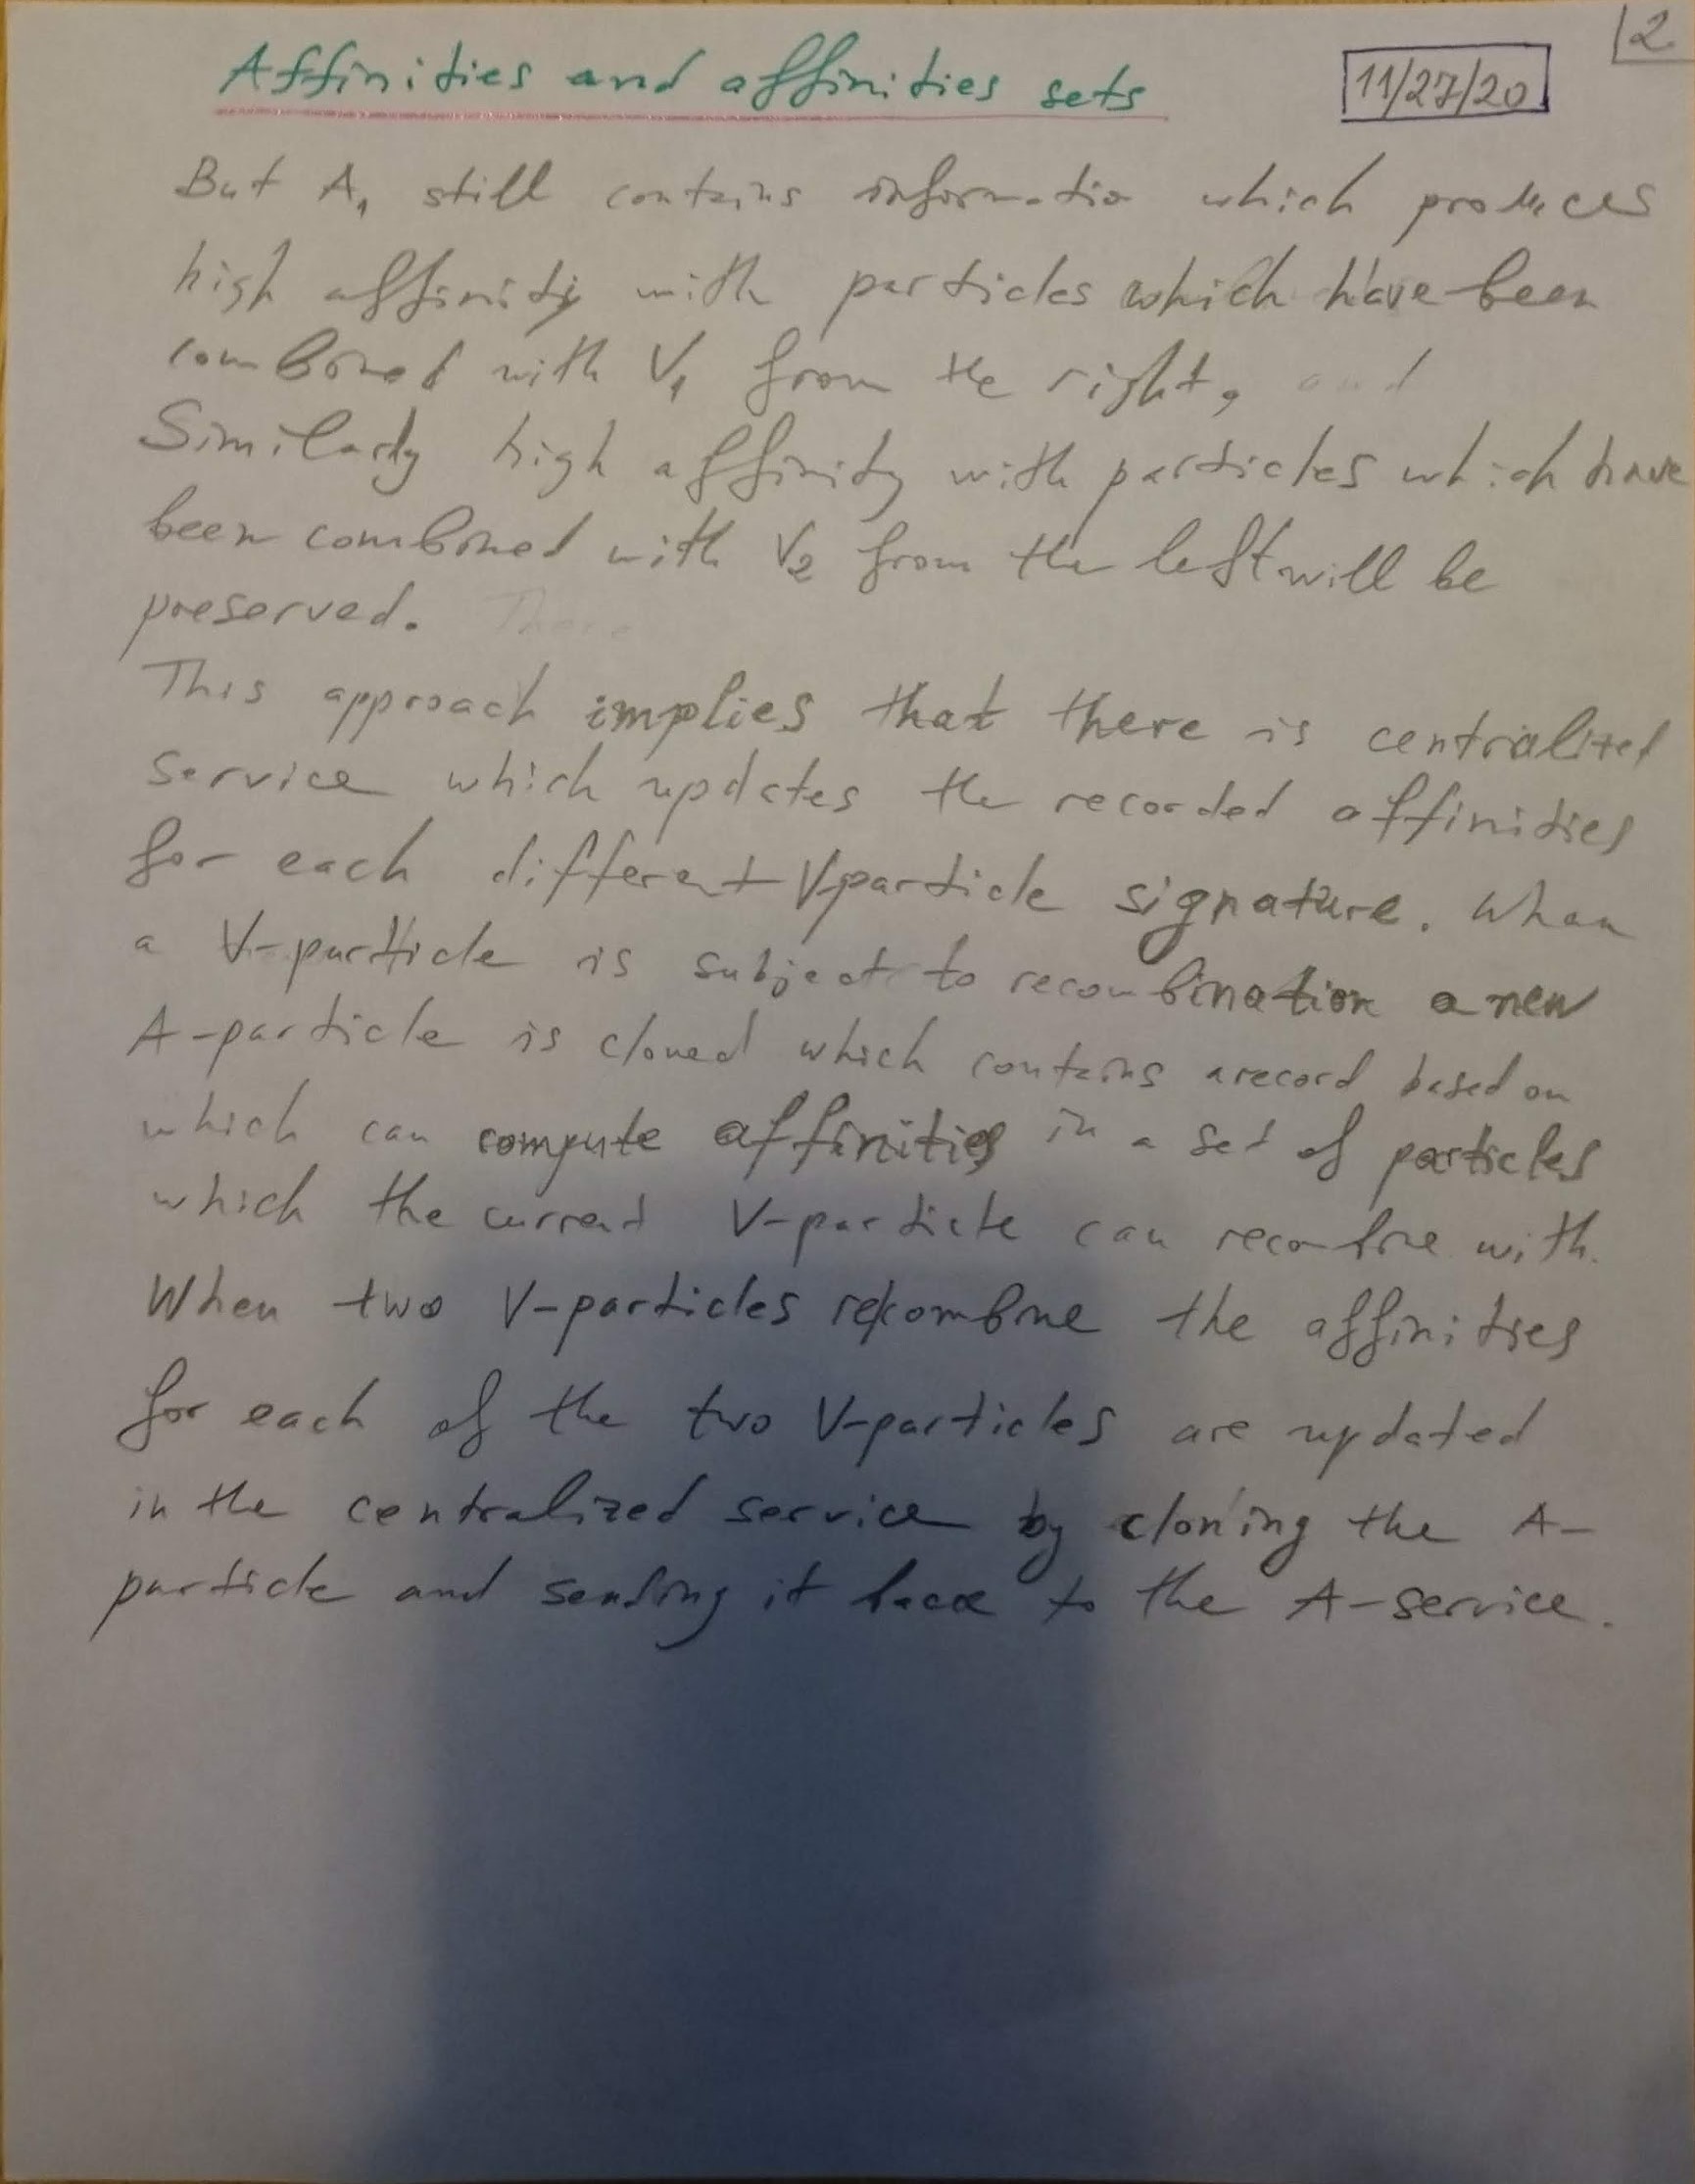 Affinities and affinities sets
11/27/20
2
But A₁ still contains information which produces
high affinity with particles which have been
combined with V₁ from the right, and
Similarly high affinity with particles which have
been combined with V₂ from the left will be
preserved. There
This approach implies that there is centralized
service which updates the recorded affinities
for each different V-particle signature. When
a V-particle is subject to recombination a new
A-particle is cloned which contains a record based on
which can compute affinities in a set of particles
which the current V-particle can recombine with.
When two V-particles recombine the affinities
for each of the two V-particles are updated
in the centralized service by cloning the A-
particle and sending it back to the A-service.